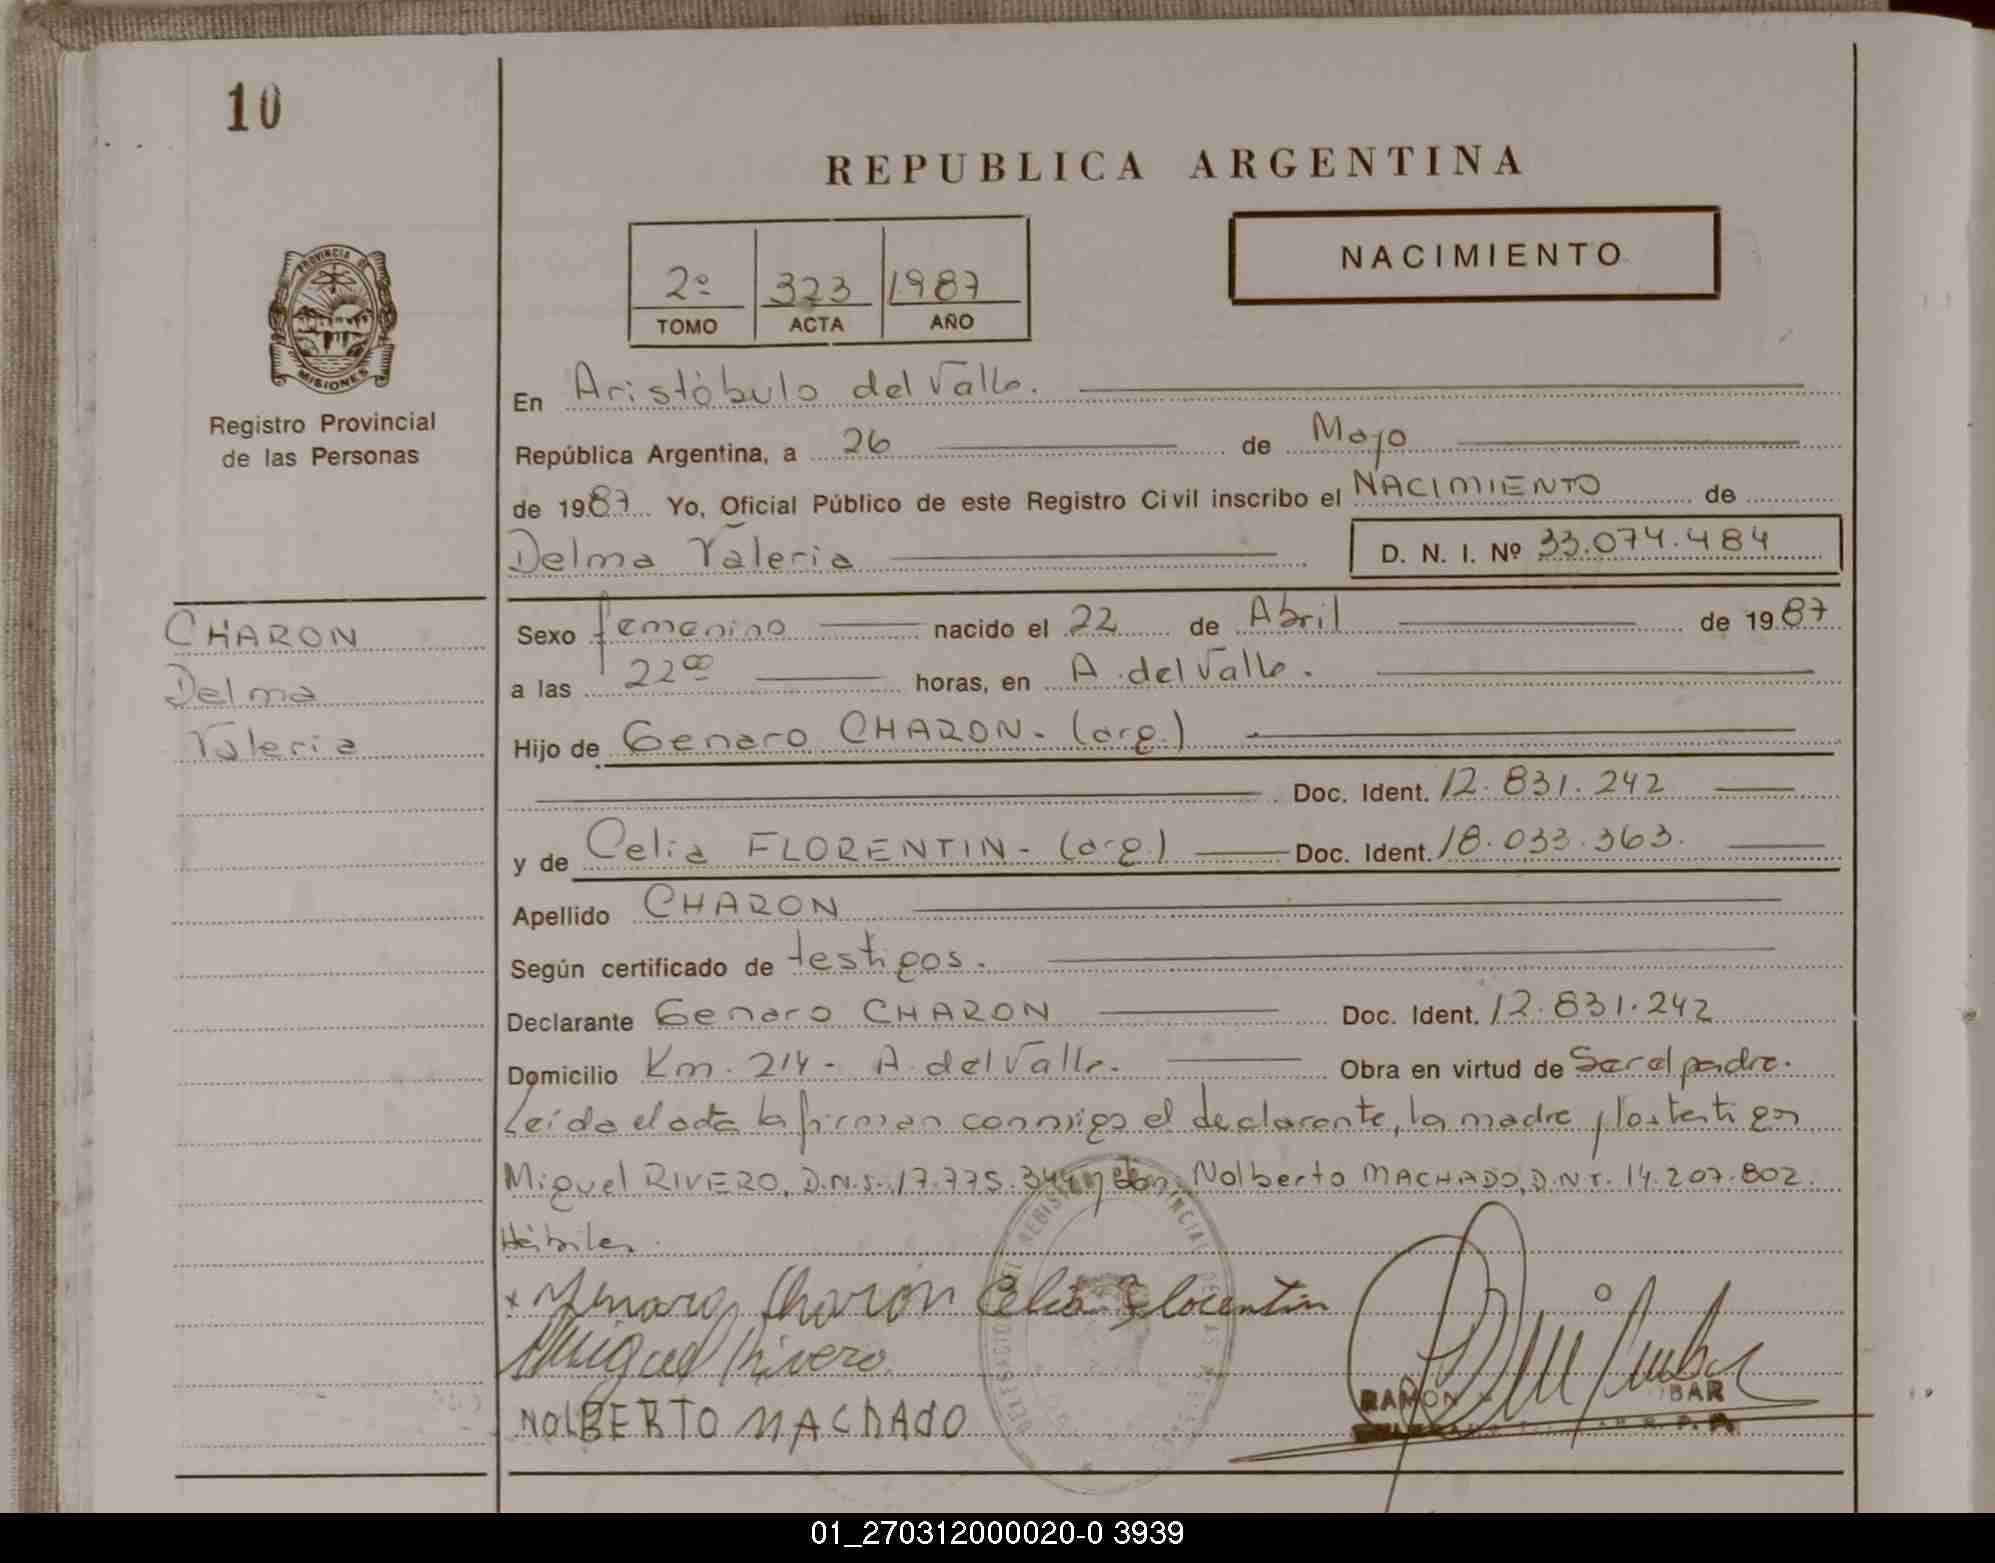 10
REPUBLICA ARGENTINA
NACIMIENTO
2º 323 1987
TOMO ACTA AÑO
PROVINCIA DE
MISIONES
Registro Provincial
de las Personas
En Aristóbulo del Valle.
República Argentina, a 26 de Mayo
de 1987 Yo, Oficial Público de este Registro Civil inscribo el NACIMIENTO de
Delma Valeria D. N. I. Nº 33.074.484
CHARON
Delma
Valeria
Sexo femenino nacido el 22 de Abril de 1987
a las 22 00 horas, en A. del Valle.
Hijo de Genaro CHARON - (arg.)
Doc. Ident. 12.831.242
y de Celia FLORENTIN - (arg.) Doc. Ident. 18.033.363.
Apellido CHARON
Según certificado de testigos.
Declarante Genaro CHARON Doc. Ident. 12.831.242
Domicilio Km. 214 - A. del Valle. Obra en virtud de Ser el padre.
Leída el acta la firman conmigo el declarante, la madre y los testigos
Miguel RIVERO, D.N.I. 17.775.344 y Nolberto MACHADO, D.N.I. 14.207.802.
Hábiles.
x Genaro Charon Celia Florentin
Miguel Rivero
NOLBERTO MACHADO
RAMON
01_270312000020-0 3939